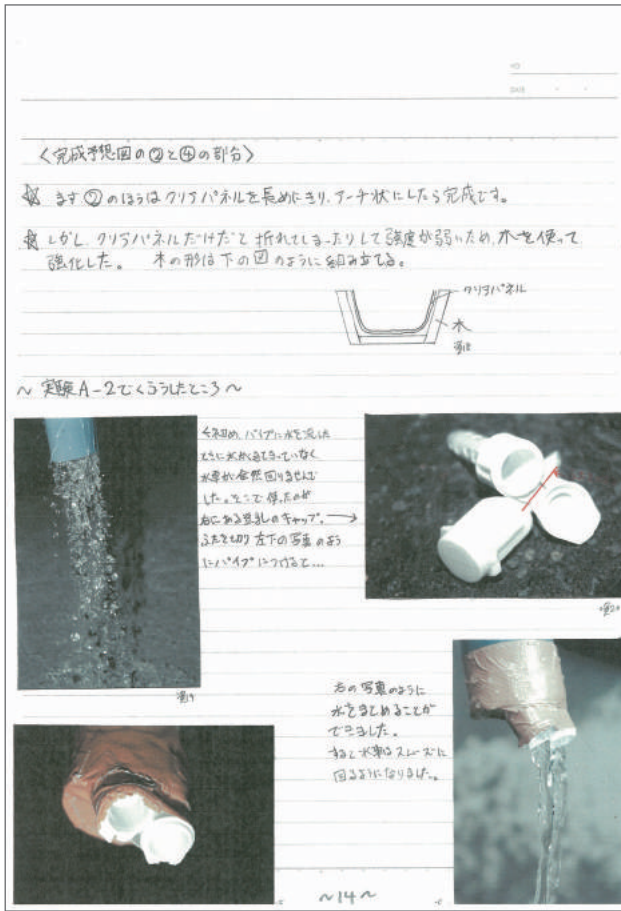 NO
DATE
〈完成予想図の②と④の部分〉
☆ まず②のほうはクリアパネルを長めにきり、アーチ状にしたら完成です。
☆ しかし、クリアパネルだけだと折れてしまったりして強度が弱いため、木を使って
強化した。 木の形は下の図のように組み立てる。
クリアパネル
木
図18
〜 実験A-2でくふうしたところ 〜
初め、パイプに水を流した
ときに水が
水車が全然回りませんで
した。そこで使ったのが
右にある豆乳のキャップ。→
ふたを切り左下の写真のよう
にパイプにつけると…
図19
図20
右の写真のように
水をまとめることが
できました。
すると水車はスムーズに
回るようになりました。
〜14〜